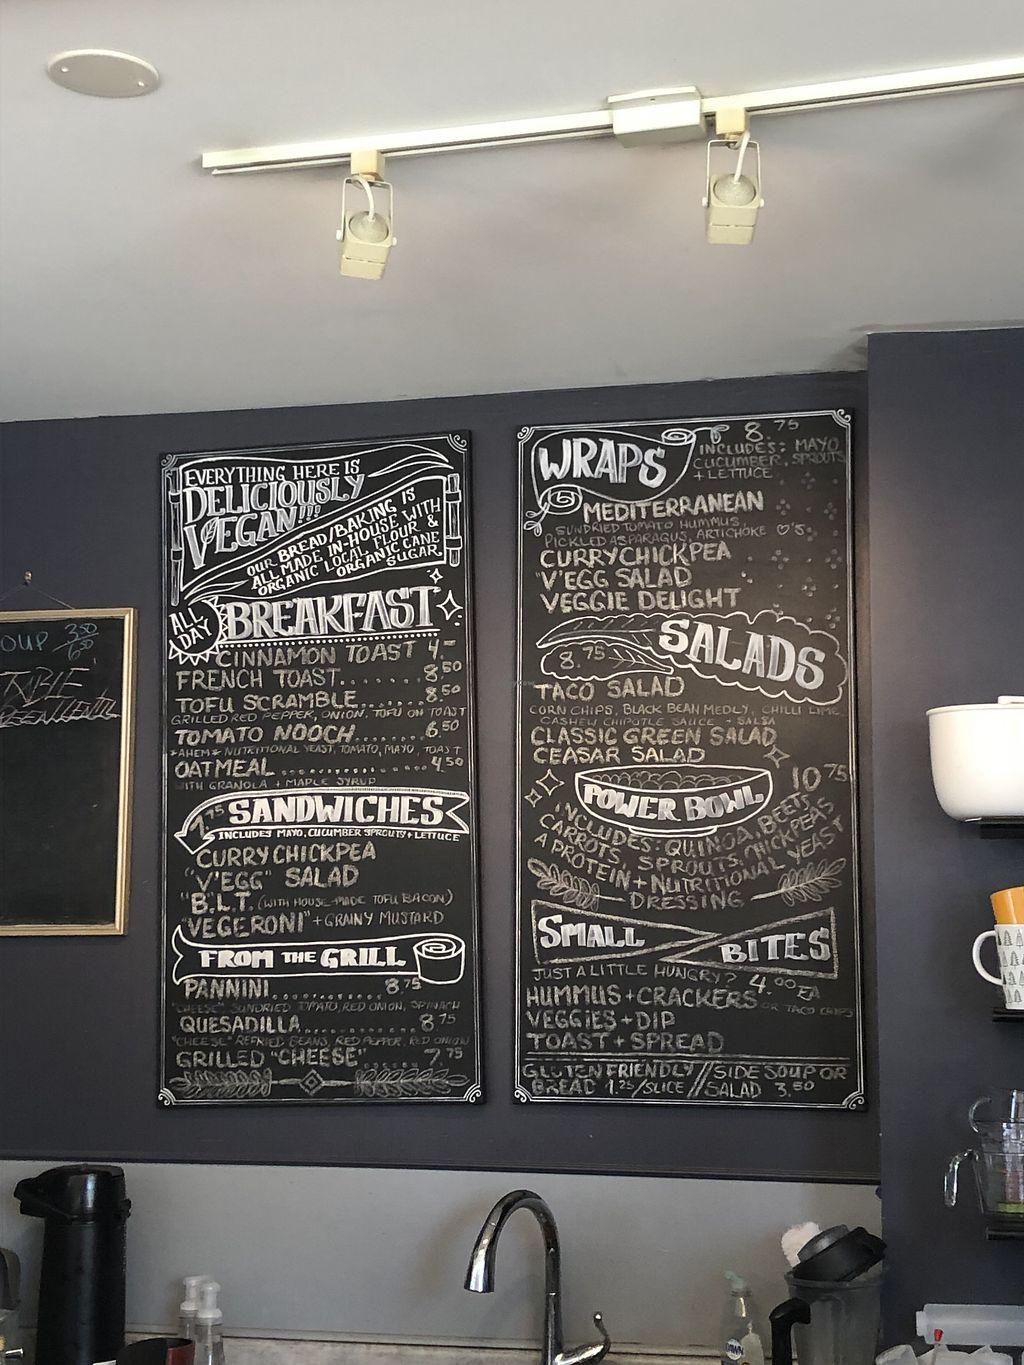 OUP 3.50
6.50
EVERYTHING HERE IS
DELICIOUSLY
VEGAN!!!
OUR BREAD/BAKING IS
ALL MADE IN-HOUSE WITH
ORGANIC LOCAL FLOUR &
ORGANIC CANE
SUGAR.
ALL DAY
BREAKFAST
CINNAMON TOAST 4.-
FRENCH TOAST....... 8.50
TOFU SCRAMBLE... 8.50
GRILLED RED PEPPER, ONION, TOFU ON TOAST
TOMATO NOOCH....... 6.50
*AHEM* NUTRITIONAL YEAST, TOMATO, MAYO, TOAST
OATMEAL............... 4.50
WITH GRANOLA + MAPLE SYRUP
7.75 SANDWICHES
INCLUDES MAYO, CUCUMBER SPROUTS + LETTUCE
CURRY CHICKPEA
"V'EGG" SALAD
"B.L.T. (WITH HOUSE-MADE TOFU BACON)
"VEGERONI" + GRAINY MUSTARD
FROM THE GRILL
PANNINI............ 8.75
"CHEESE" SUNDRIED TOMATO, RED ONION, SPINACH
QUESADILLA............. 8.75
"CHEESE" REFRIED BEANS, RED PEPPER, RED ONION
GRILLED "CHEESE" 7.75
WRAPS
8.75
INCLUDES: MAYO
CUCUMBER, SPROUTS
+ LETTUCE
MEDITERRANEAN
SUNDRIED TOMATO HUMMUS
PICKLED ASPARAGUS, ARTICHOKE ♡'S
CURRY CHICKPEA
V'EGG SALAD
VEGGIE DELIGHT
SALADS
8.75
TACO SALAD
CORN CHIPS, BLACK BEAN MEDLY, CHILLI LIME
CASHEW CHIPOTLE SAUCE + SALSA
CLASSIC GREEN SALAD
CEASAR SALAD
POWER BOWL 10.75
INCLUDES: QUINOA, BEETS
CARROTS, SPROUTS, CHICKPEAS
A PROTEIN + NUTRITIONAL YEAST
DRESSING
SMALL BITES
JUST A LITTLE HUNGRY? 4.00 EA
HUMMUS + CRACKERS OR TACO CHIPS
VEGGIES + DIP
TOAST + SPREAD
GLUTEN FRIENDLY // SIDE SOUP OR
BREAD 1.25/SLICE // SALAD 3.50
DAWN